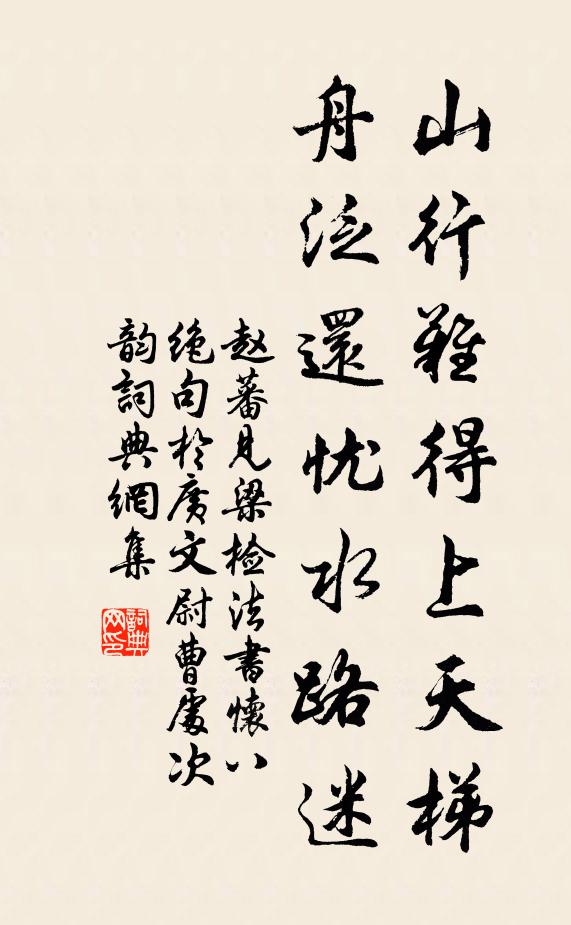 山行難得上天梯
舟泛還忧水路迷
赵蕃見梁檢法書懷八
绝句於廣文尉曹處次
韵詞典網集
詞典
网印